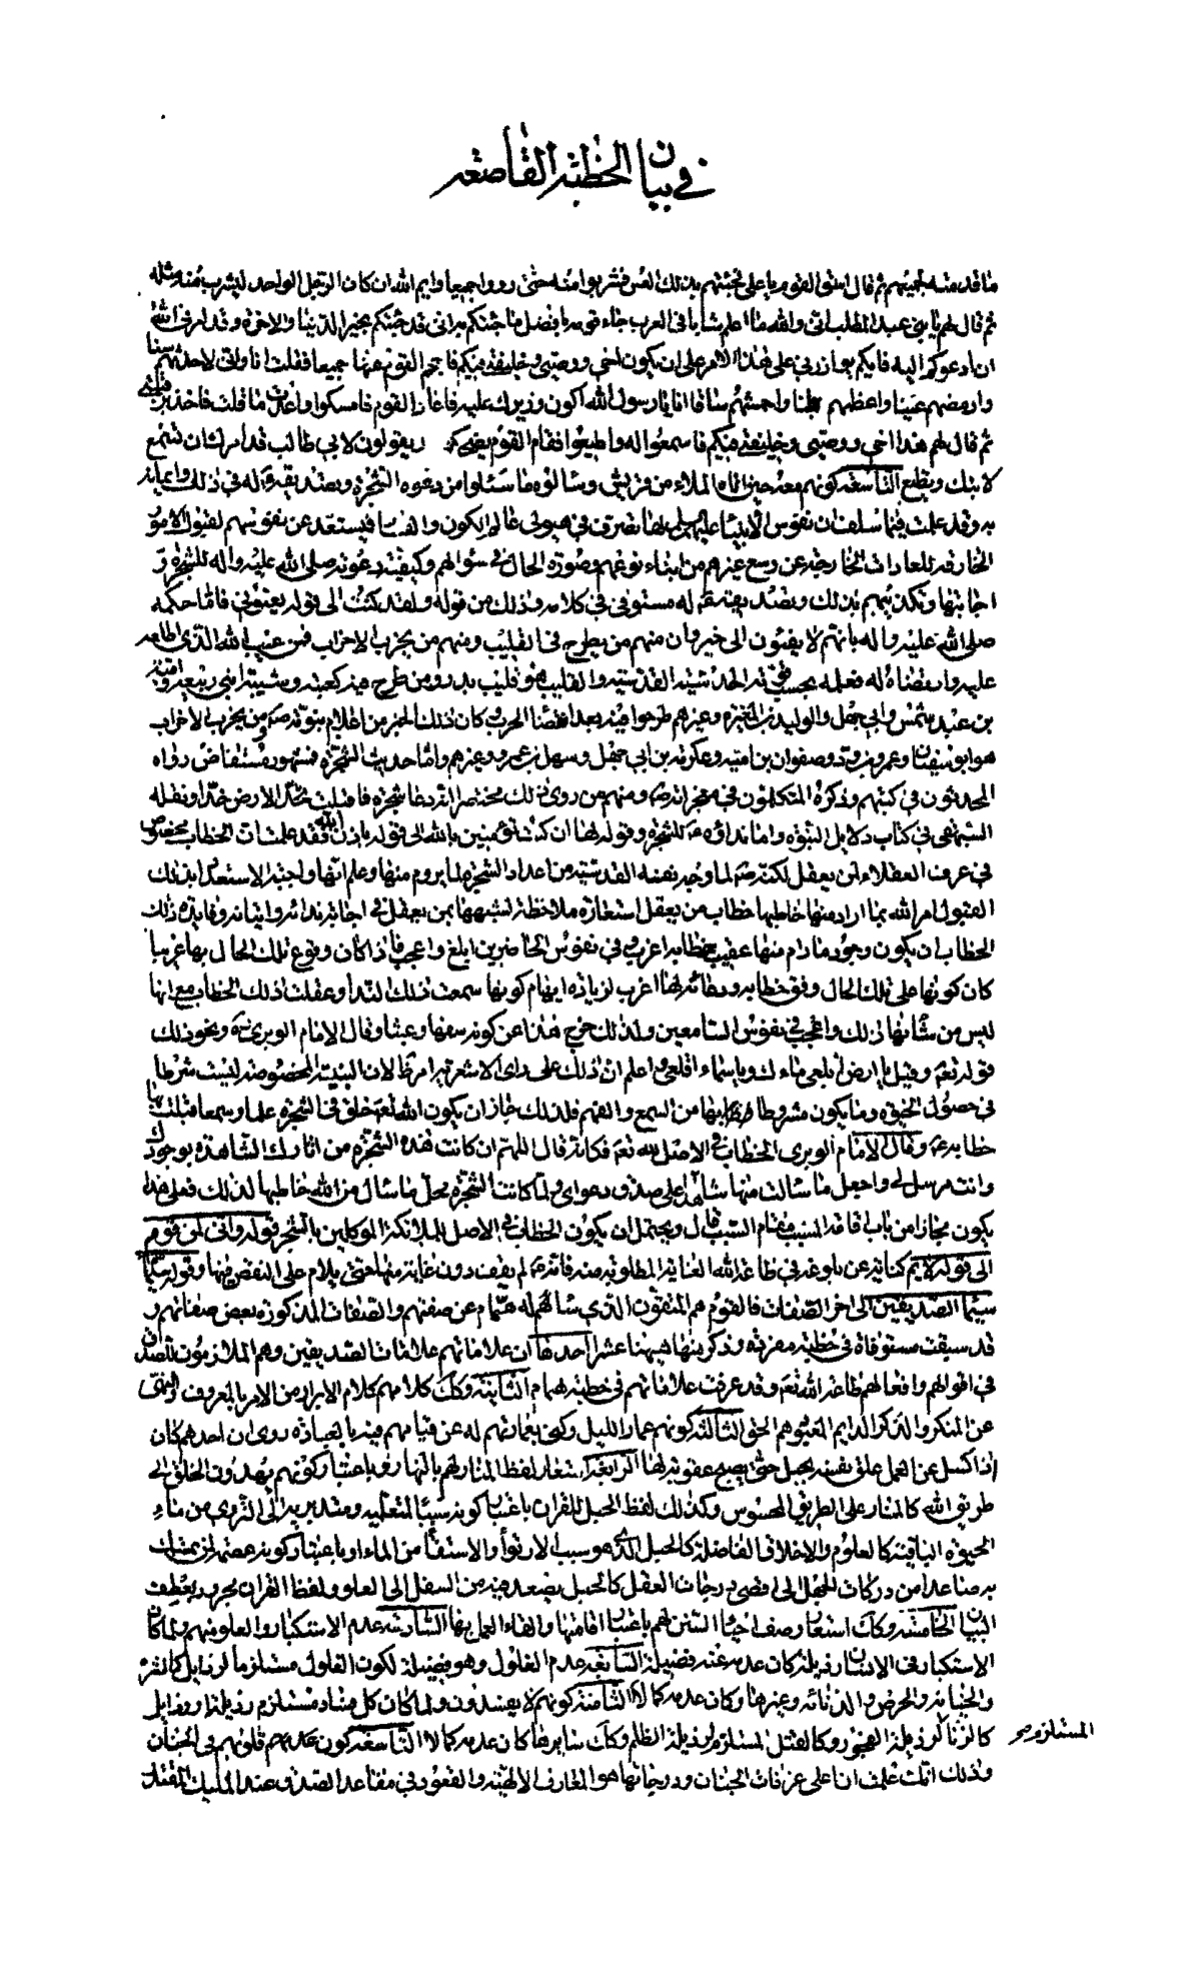 في بيان الخطبة القاصعة
ما قدمته لجميعهم ثم قال اسق القوم يا علي فجئتهم بذلك العس فشربوا منه حتى رووا جميعا وايم الله ان كان الرجل الواحد ليشرب منه مثله
ثم قال لهم يا بني عبد المطلب اني والله ما اعلم شابا في العرب جاء قومه بافضل ما جئتكم به اني قد جئتكم بخير الدنيا والاخرة وقد امرني الله
ان ادعوكم اليه فايكم يوازرني على هذا الامر على ان يكون اخي ووصيي وخليفتي فيكم فاحجم القوم عنها جميعا فقلت انا واني لاحدثهم سنا
وارمضهم عينا واعظهم بطنا واحمشهم ساقا انا يا رسول الله اكون وزيرك عليه فاعاد القوم فامسكوا واعدت ما قلت فاخذ برقبتي
ثم قال لهم هذا اخي ووصيي وخليفتي فيكم فاسمعوا له واطيعوا فقام القوم يضحكون ويقولون لابي طالب قد امرك ان تسمع
لابنك وتطيع التاسعة كونه معه حين اتاه الملاء من قريش وسالوه ما سئلوا من دعوه الشجرة وتصديقه له في ذلك وايمانه
به وقد علمت فيما سلف ان نفوس الانبياء عليهم السلم لها تصرف في هيولى عالم الكون والفساد فيستعد عن نفوسهم لقبول الامور
الخارقة للعادات الخارجة عن وسع غيرهم من ابناء نوعهم وصورة الحال في سؤالهم وكيفية دعوته صلى الله عليه واله للشجرة و
اجابتها وتكذيبهم بذلك وتصديقه له مستوفى في كلامه وذلك من قوله ولقد كنت الى قوله يعنوني فاما حكمه
صلى الله عليه واله بانهم لا يفيئون الى خير وان منهم من يطرح في القليب ومنهم من يحزب الاحزاب فمن غيب الله الذي اطلعه
عليه وارتضاه له فعلمه بحسب قوته الحدسية القدسية والقليب هو قليب بدر ومن طرح فيه كعتبة وشيبة ابني ربيعة وامية
بن عبد شمس وابي جهل والوليد بن المغيرة وغيرهم طرحوا فيه بعد انقضاء الحرب وكان ذلك الخبر من اعلام نبوته ص ومن يحزب الاحزاب
هو ابو سفيان وعمرو بن ود وصفوان بن امية وعكرمة بن ابي جهل وسهل بن عمرو وغيرهم واما حديث الشجرة فمشهور مستفاض رواه
المحدثون في كتبهم وذكره المتكلمون في معجزاته ص ومنهم من روى ذلك مختصرا انه دعا شجرة فاقبلت تخد الارض خدا ونقله
البيهقي في كتاب دلايل النبوة واما نداؤه ع للشجرة وقوله لها ان كنت تؤمنين بالله الى قوله باذن الله فقد علمت ان الخطاب مخصوص
في عرف العقلاء لمن يعقل لكنه ص لما وجه نفسه القدسية من اعداد الشجرة لما يروم منها وعلم انها واجبة الاستعداد بذلك
لقبول امر الله بما اراد منها خاطبها خطاب من يعقل استعارة ملاحظة لشبهها بمن يعقل في اجابة ندائه واتيانه وفايدة ذلك
الخطاب ان يكون وجود ما رام منها عقيب خطابه اغرب وفي نفوس الحاضرين ابلغ واعجب فاذا كان وقوع تلك الحال بها غريبا
كان كونها على تلك الحال وفق خطابه ودعائه لها اغرب لزيادة ايهام كونها سمعت ذلك النداء وعقلت ذلك الخطاب مع انها
ليس من شانها ذلك واعجب في نفوس السامعين ولذلك خرج هذا عن كونه سفها وعبثا وقال الامام الوبري ره ونحو ذلك
قوله تعم وقيل يا ارض ابلعي ماءك ويا سماء اقلعي واعلم ان ذلك على راى الاشعرية امر ظ لان البنية المخصوصة ليست شرطا
في حصول الحيوة وما يكون مشروطا بها من السمع والفهم فلذلك جاز ان يكون الله تعم خلق في الشجرة علما وسمعا قبلت بها
خطابه ع وقال الامام الوبري الخطاب في الاصل لله تعم فكانه قال اللهم ان كانت هذه الشجرة من اثارك الشاهدة بوجودك
وانت مرسل لي واجعل ما سالت منها شاهدا على صدق دعواي ولما كانت الشجرة محل ما سال من الله خاطبها لذلك فعلى هذا
يكون مجازا من باب اقامة المسبب مقام السبب قال ويحتمل ان يكون الخطاب في الاصل للملائكة الموكلين بالشجر قوله واني لمن قوم
الى قوله لائم كناية عن بلوغه في طاعة الله الغاية المطلوبة منه فانه ع لم يقف دون غاية منها حتى يلام على النقص فيها وقوله سيماهم
سيما الصديقين الى اخر الصفات فالقوم هم المتقون الذي ساله همام عن صفتهم والصفات المذكورة بعض صفاتهم و
قد سبقت مستوفاة في خطبة مفردة وذكر منها هيهنا عشرا احدها ان علاماتهم علامات الصديقين وهم الملازمون للصدق
في اقوالهم وافعالهم طاعة لله تعم وقد عرفت علاماتهم في خطبة همام الثانية وكك كلامهم كلام الابرار من الامر بالمعروف والنهى
عن المنكر والذكر الدايم لمعبودهم الحق الثالثة كونهم عمار الليل وكنى بعمارتهم له عن قيامهم فيه بالعبادة روى ان احدهم كان
اذا كسل عن العمل علق نفسه بحبل حتى يصبح عقوبة لها الرابعة استعار لفظ المنار لهم بالنهار وباعتبار كونهم يهدون الخلق الى
طريق الله كالمنار على الطريق المحسوس وكذلك لفظ الحبل للقران باعتبار كونه سببا لمتعلميه ومتدبريه الى التروى من ماء
الحيوة الباقية كالعلوم والاخلاق الفاضلة كالحبل الذي هو سبب الارتواء والاستقاء من الماء او باعتبار كونه عصمة لمن تمسك
به صاعدا من دركات الجهل الى اقصى درجات العقل كالحبل يصعد فيه من السفل الى العلو ولفظ القران مجرور بعطف
البيان الخامسة وكك استعار وصف احياء السنن لهم باعتبار اقامتها وابقاء العمل بها السادسة عدم الاستكبار والعلو منهم ولما كان
الاستكبار في الانسان رذيلة كان عدمه عنه فضيلة السابعة عدم الغلول وهو فضيلة لكون الغلول مستلزما لرذايل كالشره
والخيانة والحرص والدنائة وغيرها وكان عدمه كمالا الثامنة كونهم لا يفسدون ولما كان كل فساد مستلزم رذيلة او رذايل
كالزنا لرذيلة الفجور وكالقتل المستلزم لرذيلة الظلم وكك سايرها كان عدمه كمالا التاسعة كون عملهم قلوبهم في الجنان
وذلك انك علمت ان اعلى غرفات الجنان ودرجاتها هو المعارف الالهية والقعود في مقاعد الصدق عند المليك المقتدر
المستلزم صح